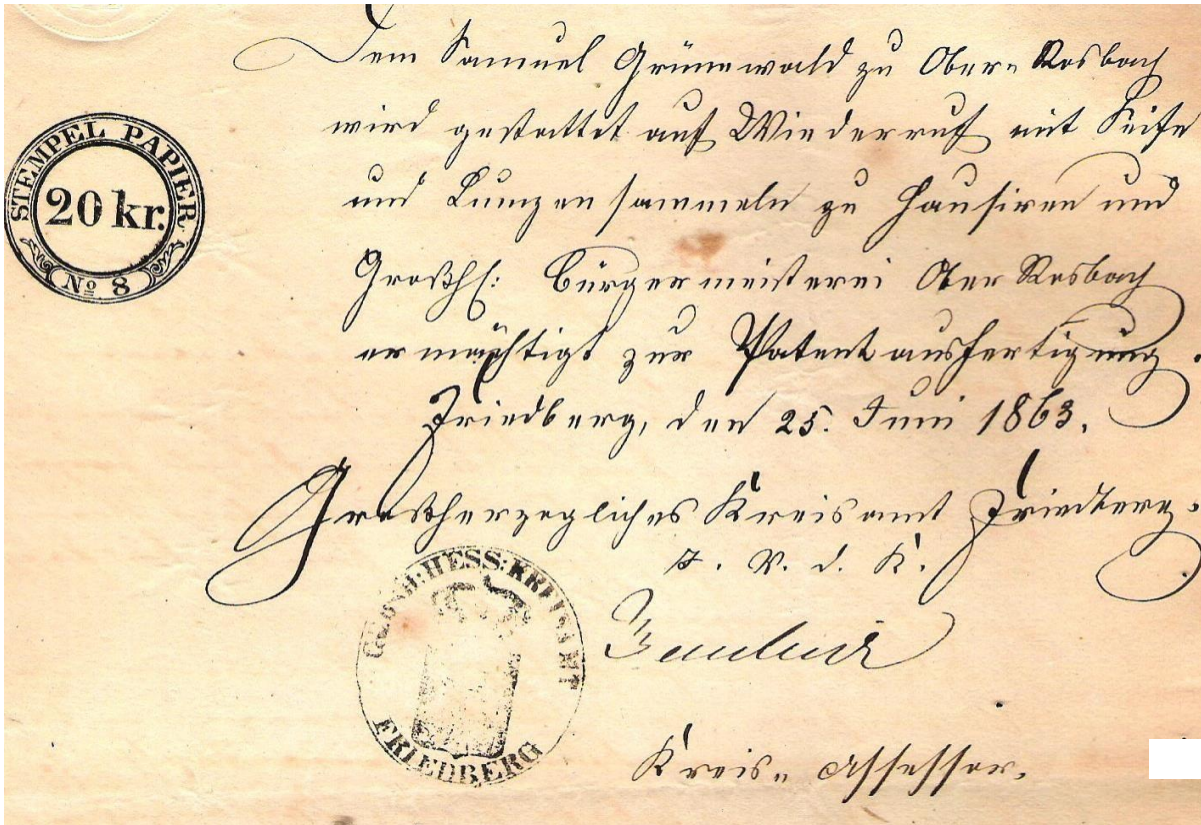 Dem Samuel Grünewald zu Ober= Rosbach
wird gestattet auf Wiederruf mit Seife
und Lumpensammeln zu Hausiren und
Großh: Bürgermeisterei Ober Rosbach
ermächtigt zur Patentausfertigung.
Friedberg, den 25. Juni 1863.
Großherzogliches Kreisamt Friedberg.
V. d. K.
Kreis= Assessor.
STEMPEL PAPIER
20 kr.
No 8
GROSH: HESS: KREISAMT
FRIEDBERG